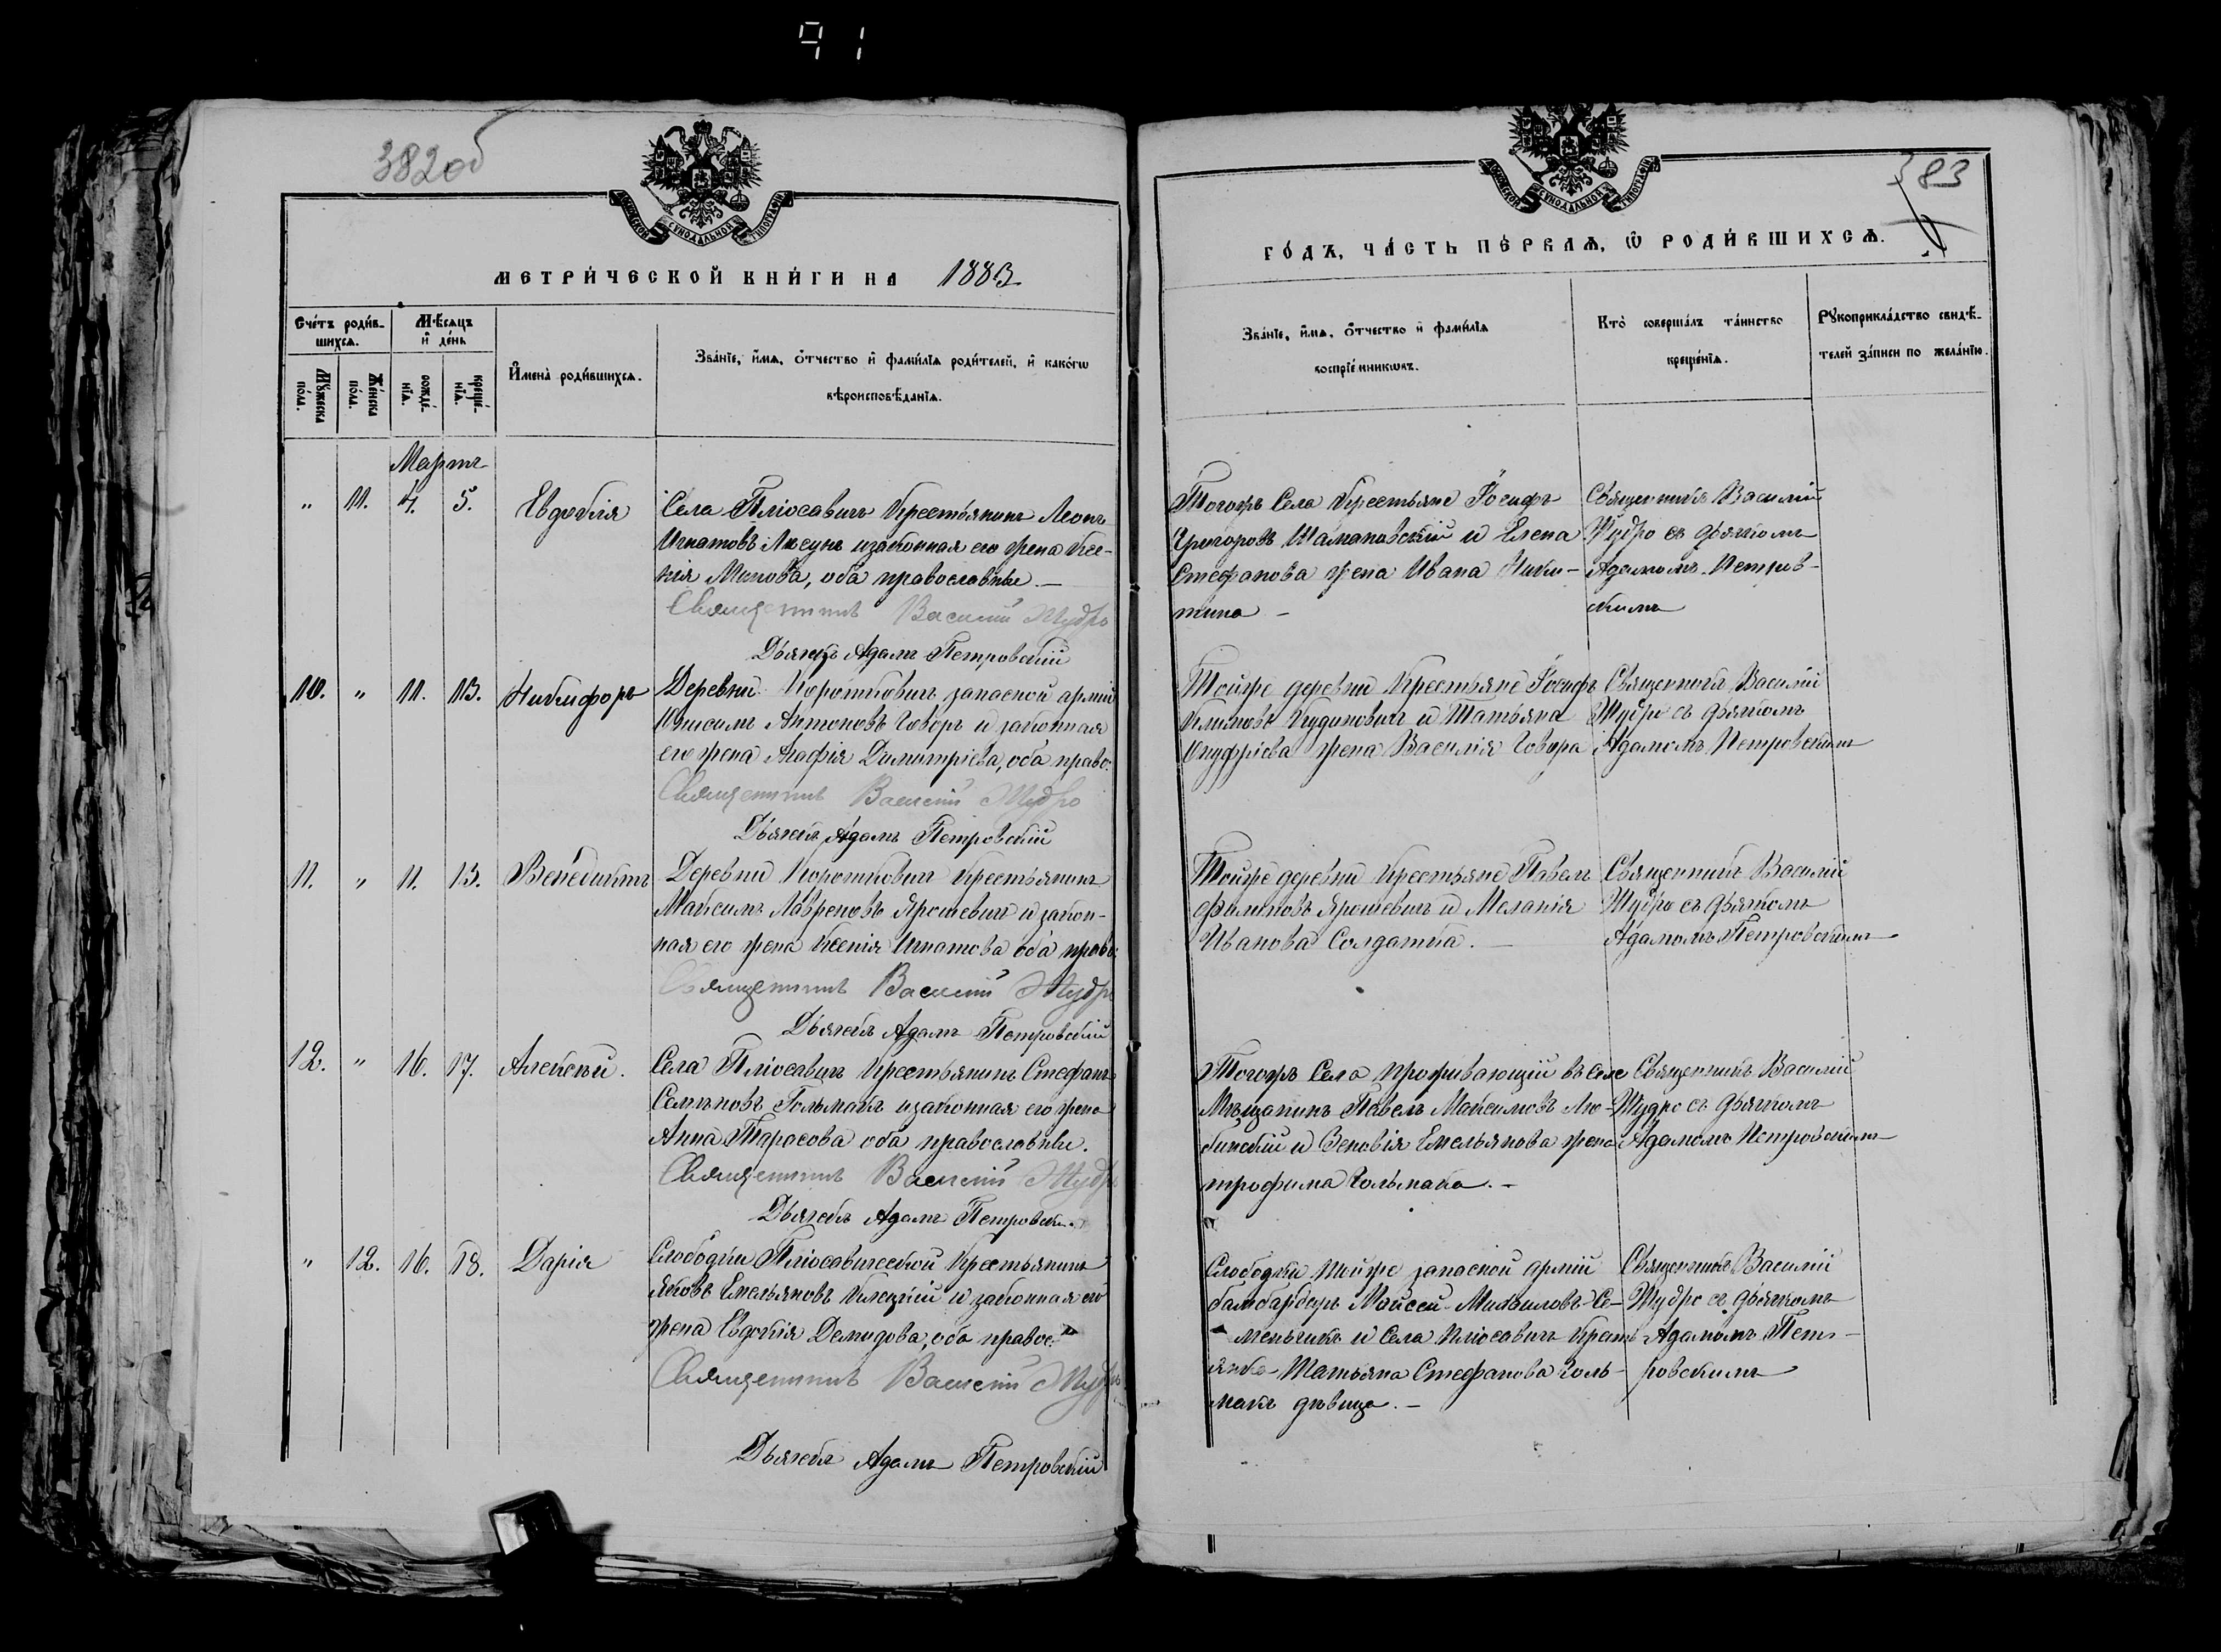 91
382об
МОСКОВСКОЙ СѴНОДАЛЬНОЙ ТИПОГРАФІИ
МЕТРИ́ЧЕСКОЙ КНИ́ГИ НА 1883
Сче́тъ роди́в-
шихсѧ.
Мѣ́сѧцъ
и҆ де́нь
Мꙋ́жеска
по́ла.
Же́нска
по́ла.
рожде́-
нїѧ.
креще́-
нїѧ.
И҆мена̀ роди́вшихсѧ.
Зва́нїе, и҆́мѧ, ѻ҆́тчество и҆ фамі́лїѧ роди́телей, и҆ како́гѡ
вѣроисповѣ́данїѧ.
Мартъ
" 11. 4. 5. Евдокія
Села Плiосавичъ Крестьянинъ Леонъ
Игнатовъ Лясунъ и законная его жена Ксе-
нія Минова, оба православные. —
Священникъ Василій Мудро
Дьячекъ Адамъ Петровскій
10. " 11. 13. Никифоръ
Деревни Коротковичъ запасной арміи
Онисимъ Антоновъ Говоръ и законная
его жена Агафія Димитріева, оба право:
Священникъ Василій Мудро
Дьячекъ Адамъ Петровскій
11. " 11. 13. Венедиктъ
Деревни Коротковичъ Крестьянинъ
Максимъ Лавреновъ Ярошевичъ и закон-
ная его жена Ксенія Игнатова оба право:
Священникъ Василій Мудро
Дьячекъ Адамъ Петровскій
12. " 16. 17. Алексѣй.
Села Плiосавичъ Крестьянинъ Стефанъ
Семеновъ Гольмакъ и законная его жена
Анна Тарасова оба православные.
Священникъ Василій Мудро
Дьячекъ Адамъ Петровскій
" 12. 16. 18. Дарія
Слободки Плiосавичской Крестьянинъ
Яковъ Емельяновъ Клецкій и законная его
жена Евдокія Демидова, оба правос:
Священникъ Василій Мудро
Дьячекъ Адамъ Петровскій
383
МОСКОВСКОЙ СѴНОДАЛЬНОЙ ТИПОГРАФІИ
ГО́ДЪ, ЧА́СТЬ ПЕ́РВАѦ, Ѽ РОДИ́ВШИХСѦ.
Зва́нїе, и҆́мѧ, ѻ҆́тчество и҆ фамі́лїѧ
воспрїе́мникѡвъ.
Кто̀ соверша́лъ та́инство
креще́нїѧ.
Рꙋкоприкла́дство свидѣ́-
телей за́писи по жела́нїю.
Тогожъ Села Крестьяне Іосифъ
Григоровъ Шамановскій и Елена
Стефанова жена Ивана Ники-
тина —
Священникъ Василій
Мудро съ дьячкомъ
Адамомъ Петров-
скимъ
Тойже деревни Крестьяне Іосифъ
Климовъ Кудиновичъ и Татьяна
Онуфріева жена Василія Говора
Священникъ Василій
Мудро съ дьячкомъ
Адамомъ Петровскимъ
Тойже деревни Крестьяне Павелъ
Ярошевичъ и Меланія
Иванова Солдатка. —
Священникъ Василій
Мудро съ дьячкомъ
Адамомъ Петровскимъ
Тогожъ Села проживающій въ селе
Мѣщанинъ Павелъ Максимовъ Лю-
бинскій и Зеновія Емельянова жена
трофима Гольмака. —
Священникъ Василій
Мудро съ дьячкомъ
Адамомъ Петровскимъ
Слободки тойже запасной арміи
бамбардеръ Моисей Михаиловъ Се-
менчикъ и Села Плiосавичъ Кресть-
янка Татьяна Стефанова Голь-
макъ дѣвица. —
Священникъ Василій
Мудро съ дьячкомъ
Адамомъ Пет-
ровскимъ